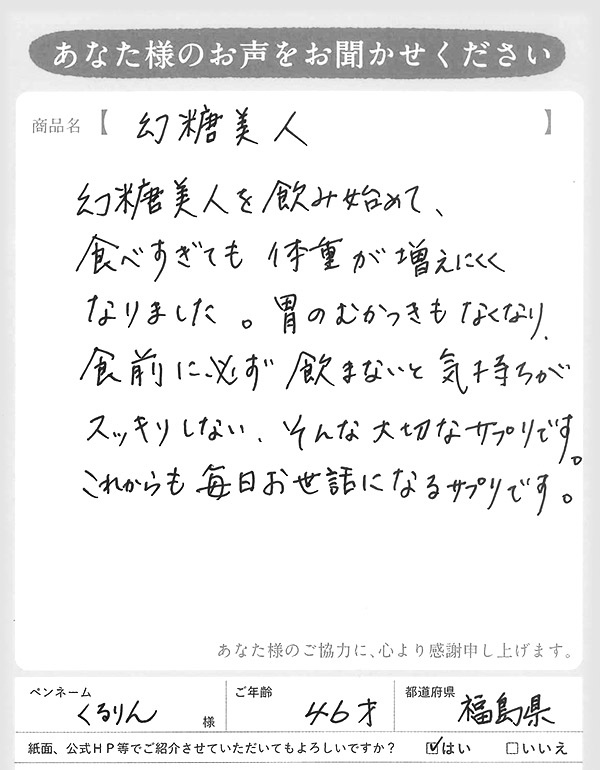 あなた様のお声をお聞かせください
商品名【 幻糖美人 】
幻糖美人を飲み始めて、
食べすぎても 体重が増えにくく
なりました。胃のむかつきもなくなり、
食前に必ず飲まないと気持ちが
スッキリしない、そんな大切なサプリです。
これからも毎日お世話になるサプリです。
あなた様のご協力に、心より感謝申し上げます。
ペンネーム くるりん 様 ご年齢 46才 都道府県 福島県
紙面、公式HP等でご紹介させていただいてもよろしいですか? ☑はい □いいえ